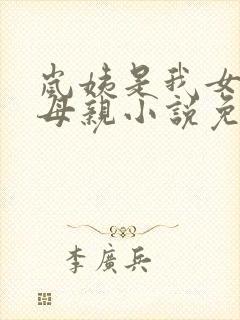 嵐姨是我女
母親小説免
李廣兵